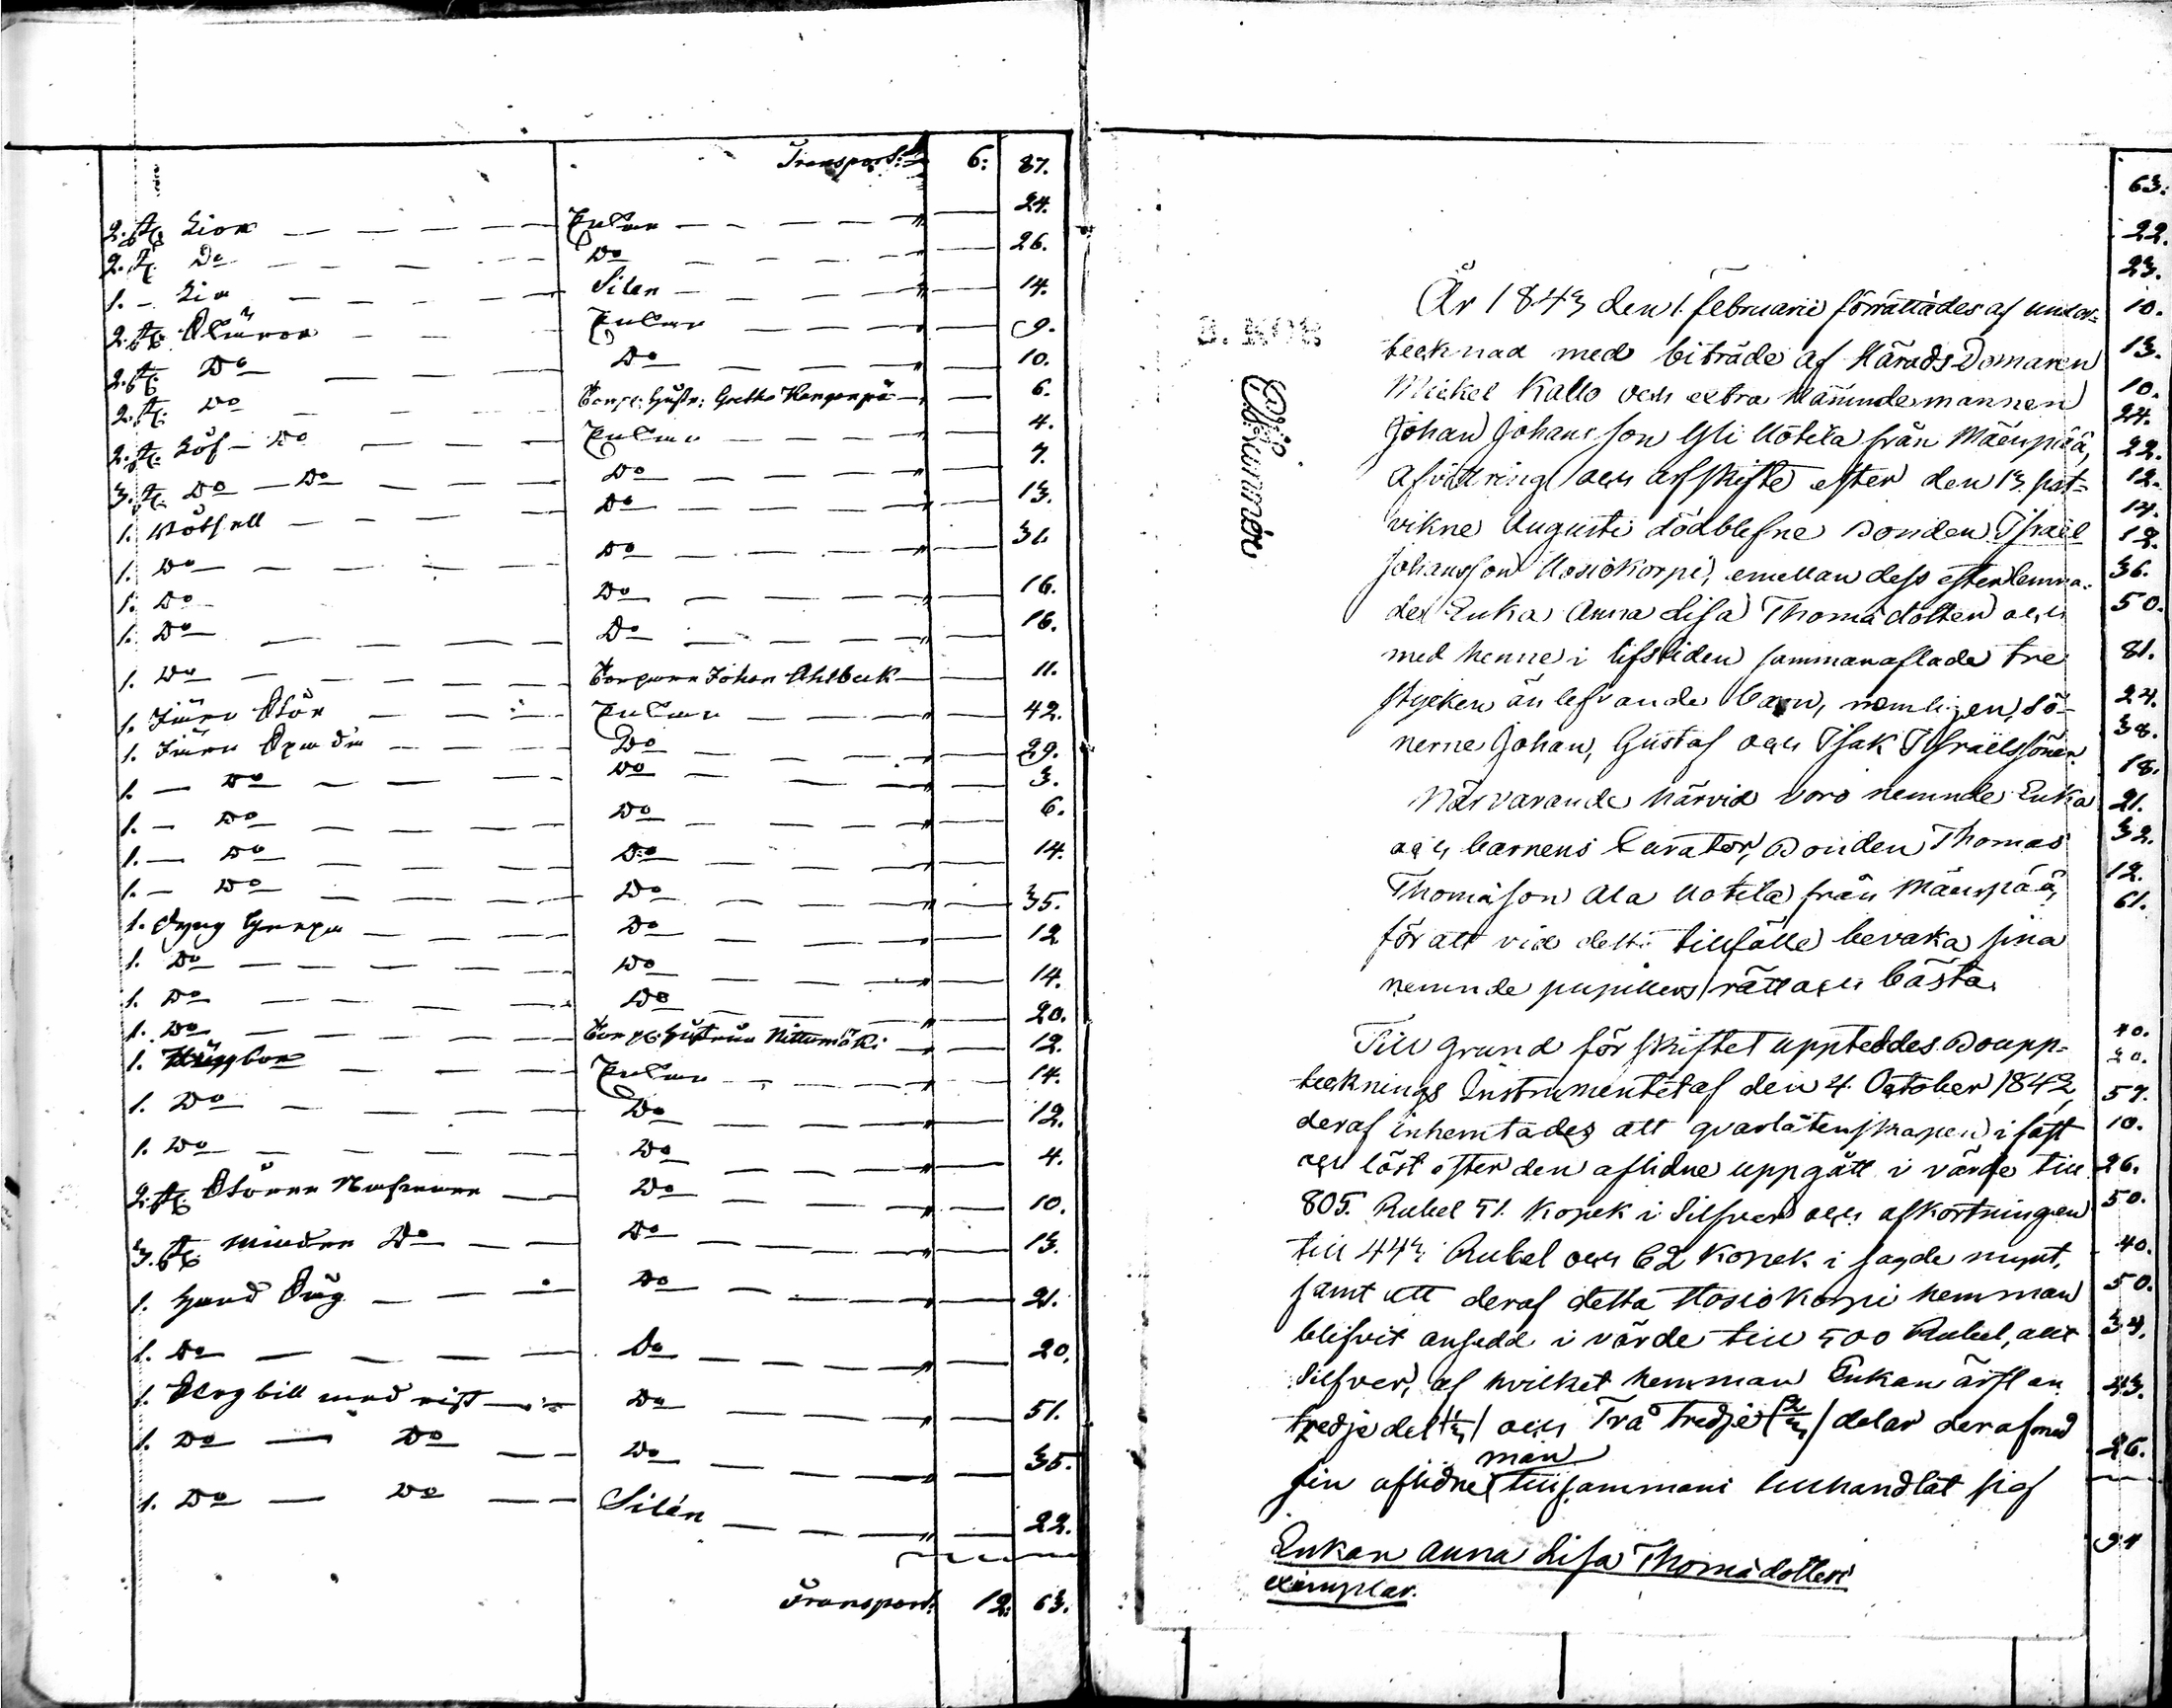 Transport: 6: 87.
2. st. Lior Pulner 24.
2. st. Do Do 26.
1. - Lia Silen 14.
2. st. Skäror Pulner 9.
2. st. Do Do 10.
2. st. Do Torp: Hustr: Gretha Kangenpä 6.
2. st. Löf - Do Pulner 4.
3. st. Do - Do Do 7.
1. Do 13.
1. Do Do 31.
1. Do Do 16.
1. Do Do 16.
1. Do Torparen Johan Ahlbeck 11.
1. Jern Stör Pulner 42.
1. Jern Spade Do 29.
1. - Do Do 3.
1. - Do Do 6.
1. - Do Do 14.
1. - Do Do 35.
1. Dyng Grepa Do 12
1. Do Do 14.
1. Do Do 20.
1. Do Torp: Hustrun Nittumäki 12.
1. Pulner 14.
1. Do Do 12.
1. Do Do 4.
2. st. Större Nafvare Do 10.
3. st. mindre Do Do 13.
1. Hand Såg Do 21.
1. Do Do 20.
1. Plogbill med rist Do 51.
1. Do - Do Do 35.
1. Do - Do Silén 22.
Transport: 12: 63.
År 1843 den 1. februarii förrättades af under-
tecknad med biträde af Härads Domaren
Michel Kallo och extra Nämndemannen
Johan Johansson Yli Uotila från Mäenpää,
Afvittring och arfskifte efter den 13. sist-
vikne Augusti dödblefne Bonden Israel
Johansson Uosiokorpi, emellan dess efterlemna-
de Enka Anna Lisa Thomadotter och
med henne i lifstiden sammanaflade tre
stycken än lefvande barn, nemligen, Sö-
nerne Johan, Gustaf och Isak Israelssöner.
Närvarande härvid voro nemnde Enka
och barnens Curator, Bonden Thomas
Thomasson Ala Uotila från Mäenpää,
för att vid detta tillfälle bevaka sina
nemnde pupillers rätt och bästa.
Till grund för skiftet uppteddes Boupp-
tecknings Instrumentet af den 4. October 1842,
deraf inhemtades att qvarlåtenskapen i fast
och löst efter den aflidne uppgått i värde till
805. Rubel 51. Kopek i Silfver och afkortningen
till 443. Rubel och 62 Kopek i sagde mynt,
samt att deraf detta Uosiokorpi hemman
blifvit ansedd i värde till 500 Rubel, allt
Silfver, af hvilket hemman Enkan ärft en
tredjedel (1/3) och Två tredje (2/3) delar deraf med
man
sin aflidne tillsammans tillhandlat sig
Enkan Anna Lisa Thomadotters
exemplar.
63:
22.
23.
10.
13.
10.
24.
22.
12.
14.
12.
36.
50.
81.
24.
38.
18.
21.
32.
12.
61.
40.
20.
57.
10.
26.
50.
40.
50.
34.
43.
26.